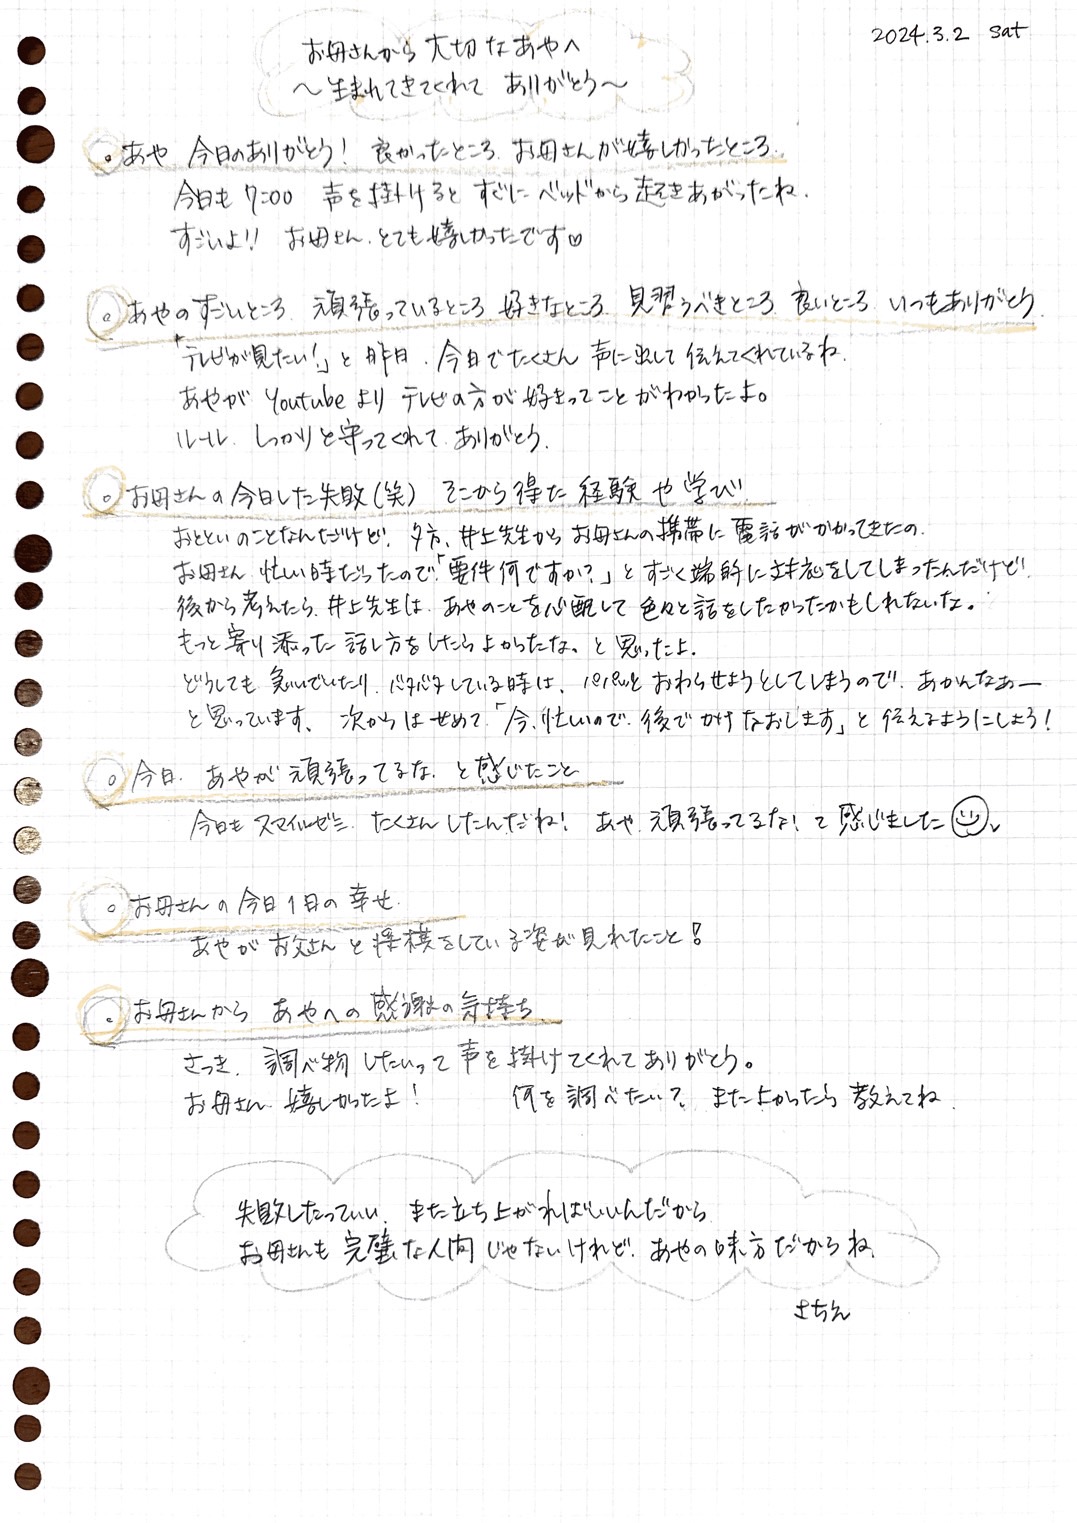 2024.3.2 sat
お母さんから大切なあやへ
〜生まれてきてくれて ありがとう〜
あや 今日のありがとう! 良かったところ、お母さんが嬉しかったところ、
今日も 7:00 声を掛けると すぐに ベッドから起きあがったね、
すごいよ!! お母さん、とても嬉しかったです♡
あやのすごいところ、頑張っているところ、好きなところ、見習うべきところ、良いところ、いつもありがとう
「テレビが見たい!」と昨日、今日でたくさん声に出して伝えてくれているね、
あやが Youtubeより テレビの方が好きってことがわかったよ。
ルール、しっかりと守ってくれて、ありがとう、
お母さんの今日した失敗(笑) そこから得た経験や学び
おとといのことなんだけど、夕方、井上先生から お母さんの携帯に電話がかかってきたの、
お母さん、忙しい時だったので、「要件何ですか?」とすごく端的に対応をしてしまったんだけど、
後から考えたら、井上先生は、あやのことを心配して色々と話をしたかったかもしれないな。
もっと寄り添った話し方をしたらよかったな、と思ったよ、
どうしても急いでいたり、バタバタしている時は、パパッとおわらせようとしてしまうので、あかんなぁー
と思っています、次からはせめて、「今、忙しいので、後でかけなおします」と伝えるようにしよう!
今日、あやが頑張ってるな、と感じたこと
今日もスマイルゼミ、たくさんしたんだね! あや、頑張ってるな!て感じました☺、
お母さんの今日1日の幸せ、
あやがお父さんと将棋をしている姿が見れたこと!
お母さんから あやへの感謝の気持ち、
さっき、調べ物したいって声を掛けてくれてありがとう。
お母さん、嬉しかったよ! 何を調べたい?、またよかったら教えてね、
失敗したっていい、また立ち上がればいいんだから
お母さんも完璧な人間じゃないけれど、あやの味方だからね、
さちえ